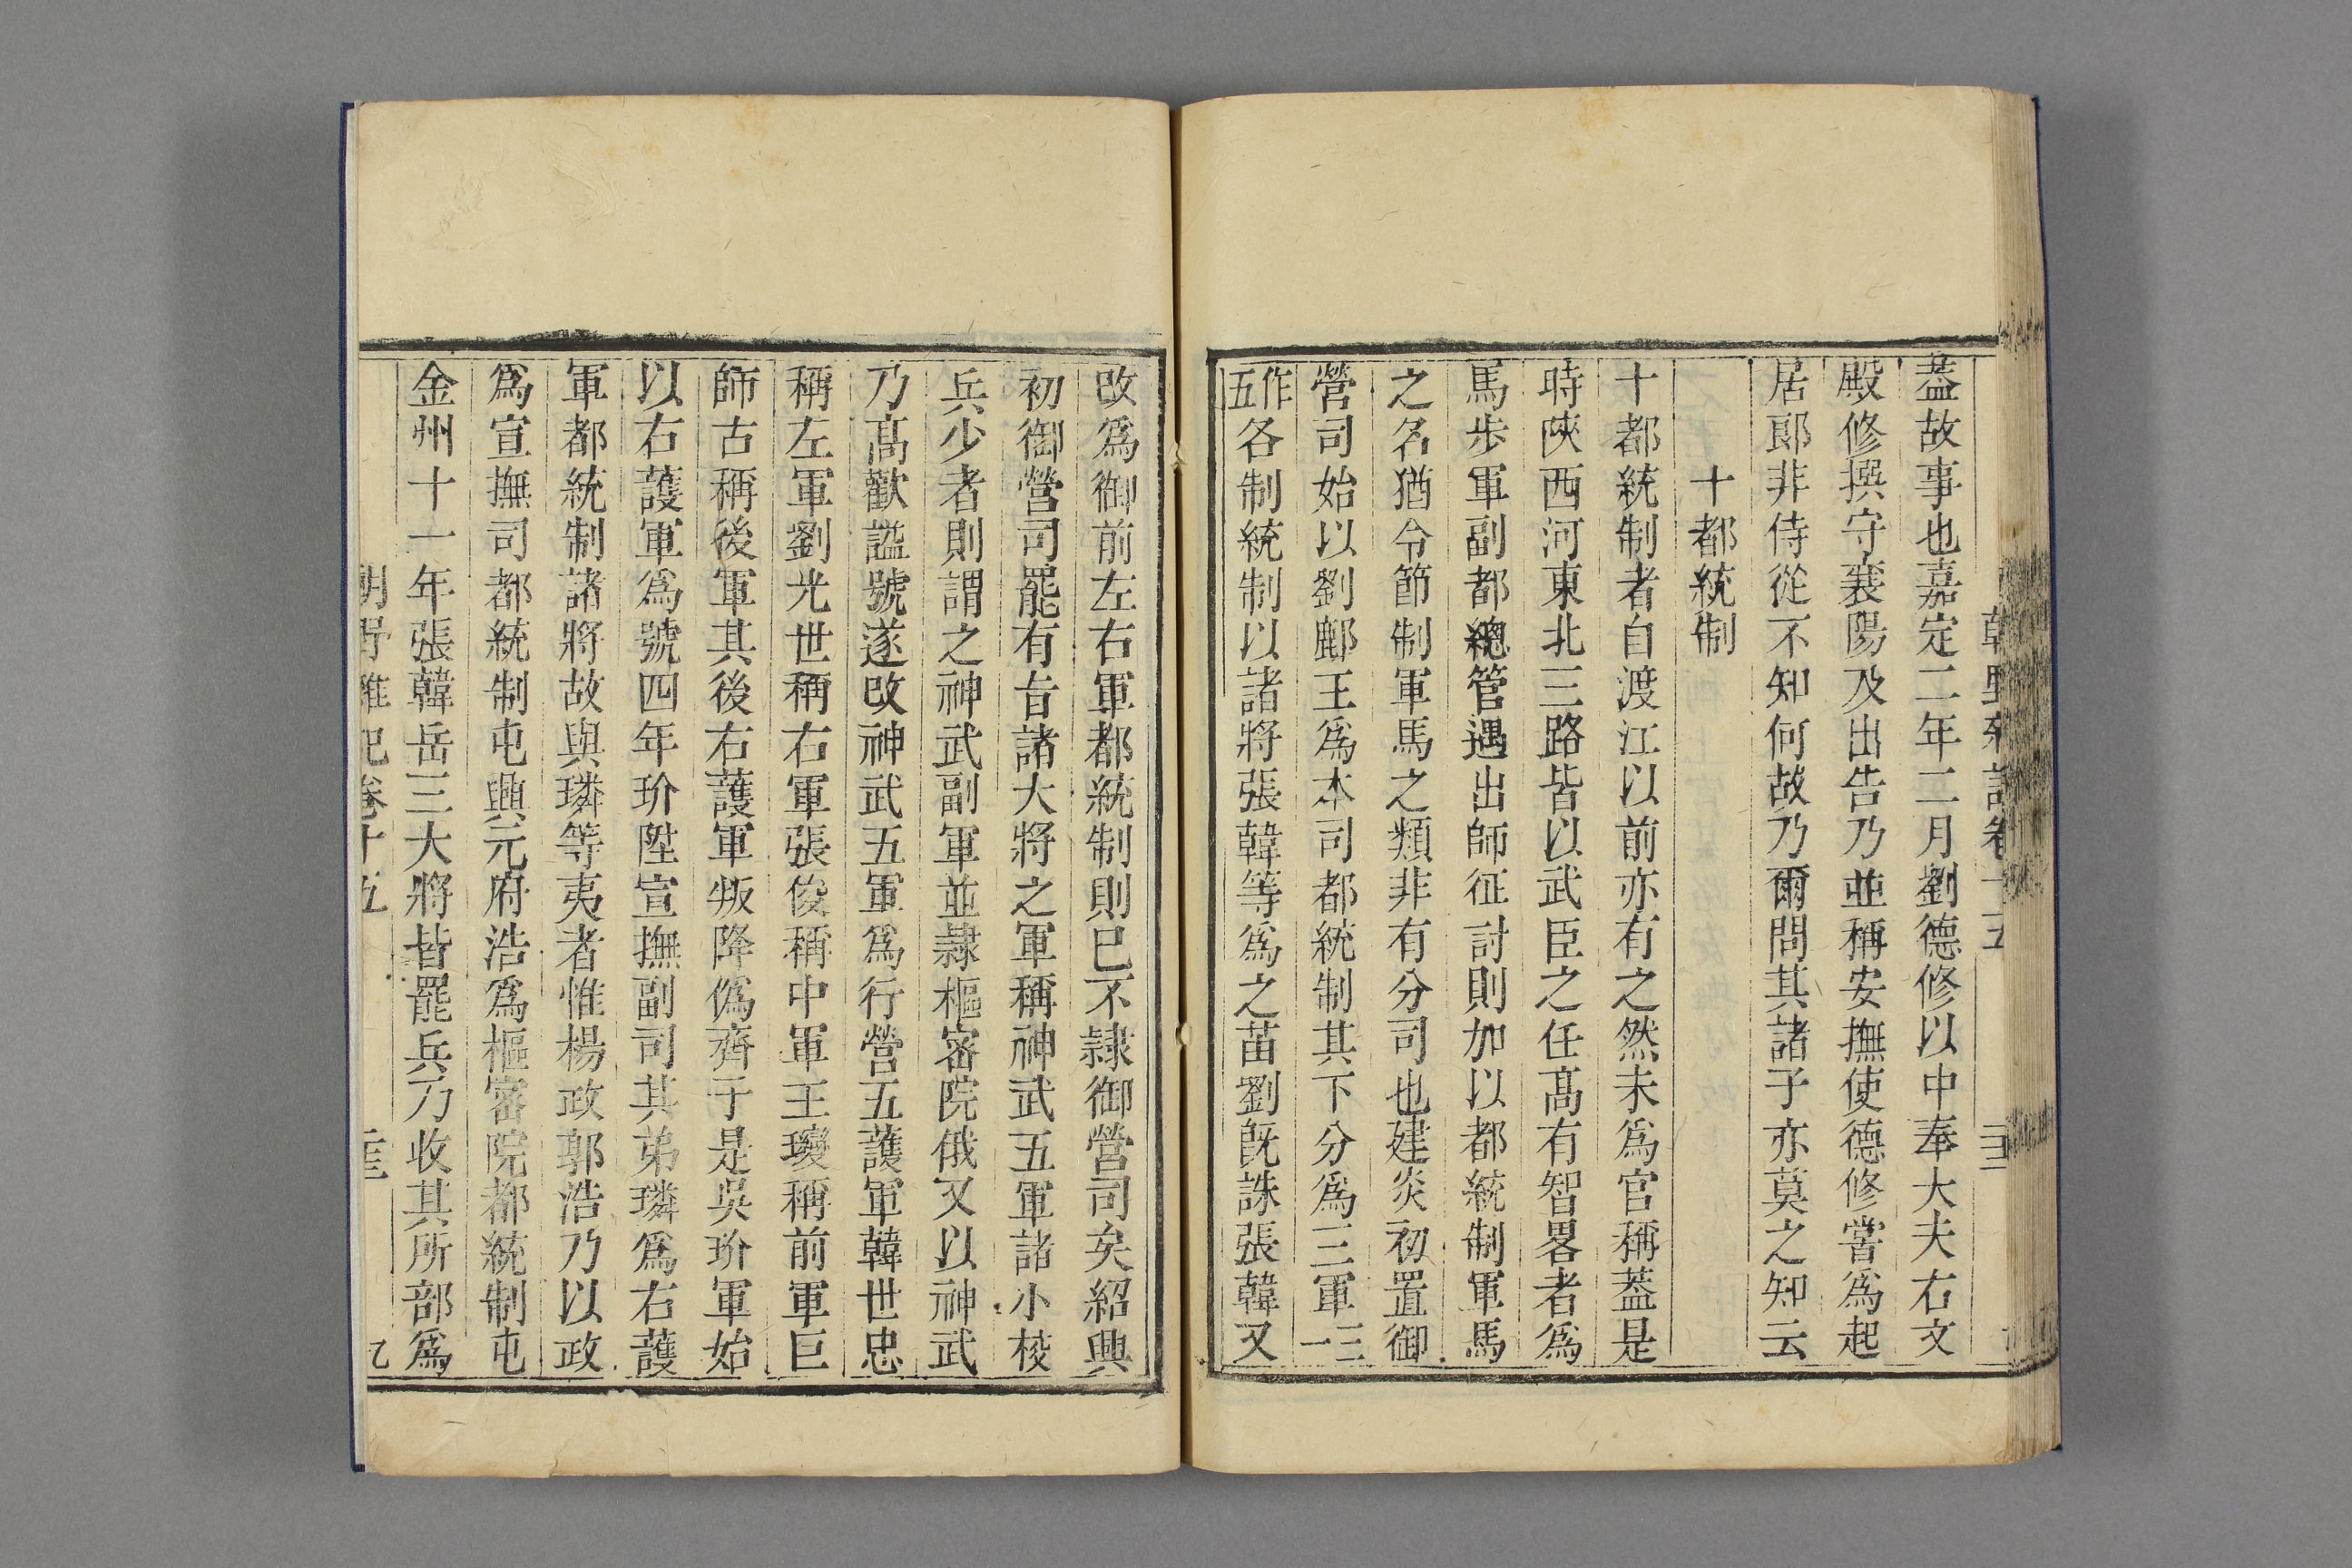 蓋故事也嘉定二年二月劉德修以中奉大夫右文
殿修撰守襄陽及出告乃並稱安撫使德修嘗爲起
居郞非侍從不知何故乃爾問其諸子亦莫之知云
十都統制
十都統制者自渡江以前亦有之然未爲官稱蓋是
時陜西河東北三路皆以武臣之任髙有智畧者爲
馬步軍副都總管遇出師征討則加以都統制軍馬
之名猶令節制軍馬之類非有分司也建炎初置御
營司始以劉鄜王爲本司都統制其下分爲三軍三一
作五各制統制以諸將張韓等爲之苗劉旣誅張韓又
改爲御前左右軍都統制則巳不隷御營司矣紹興
初御營司罷有旨諸大將之軍稱神武五軍諸小校
兵少者則謂之神武副軍並隷樞宻院俄又以神武
乃髙歡謚號遂改神武五軍爲行營五護軍韓世忠
稱左軍劉光世稱右軍張俊稱中軍王𤫉稱前軍巨
師古稱後軍其後右護軍叛降僞齊于是吳玠軍始
以右護軍爲號四年玠陞宣撫副司其弟璘爲右護
軍都統制諸將故與璘等夷者惟楊政郭浩乃以政
爲宣撫司都統制屯興元府浩爲樞宻院都統制屯
金州十一年張韓岳三大將皆罷兵乃收其所部爲
朝野雜記卷十五